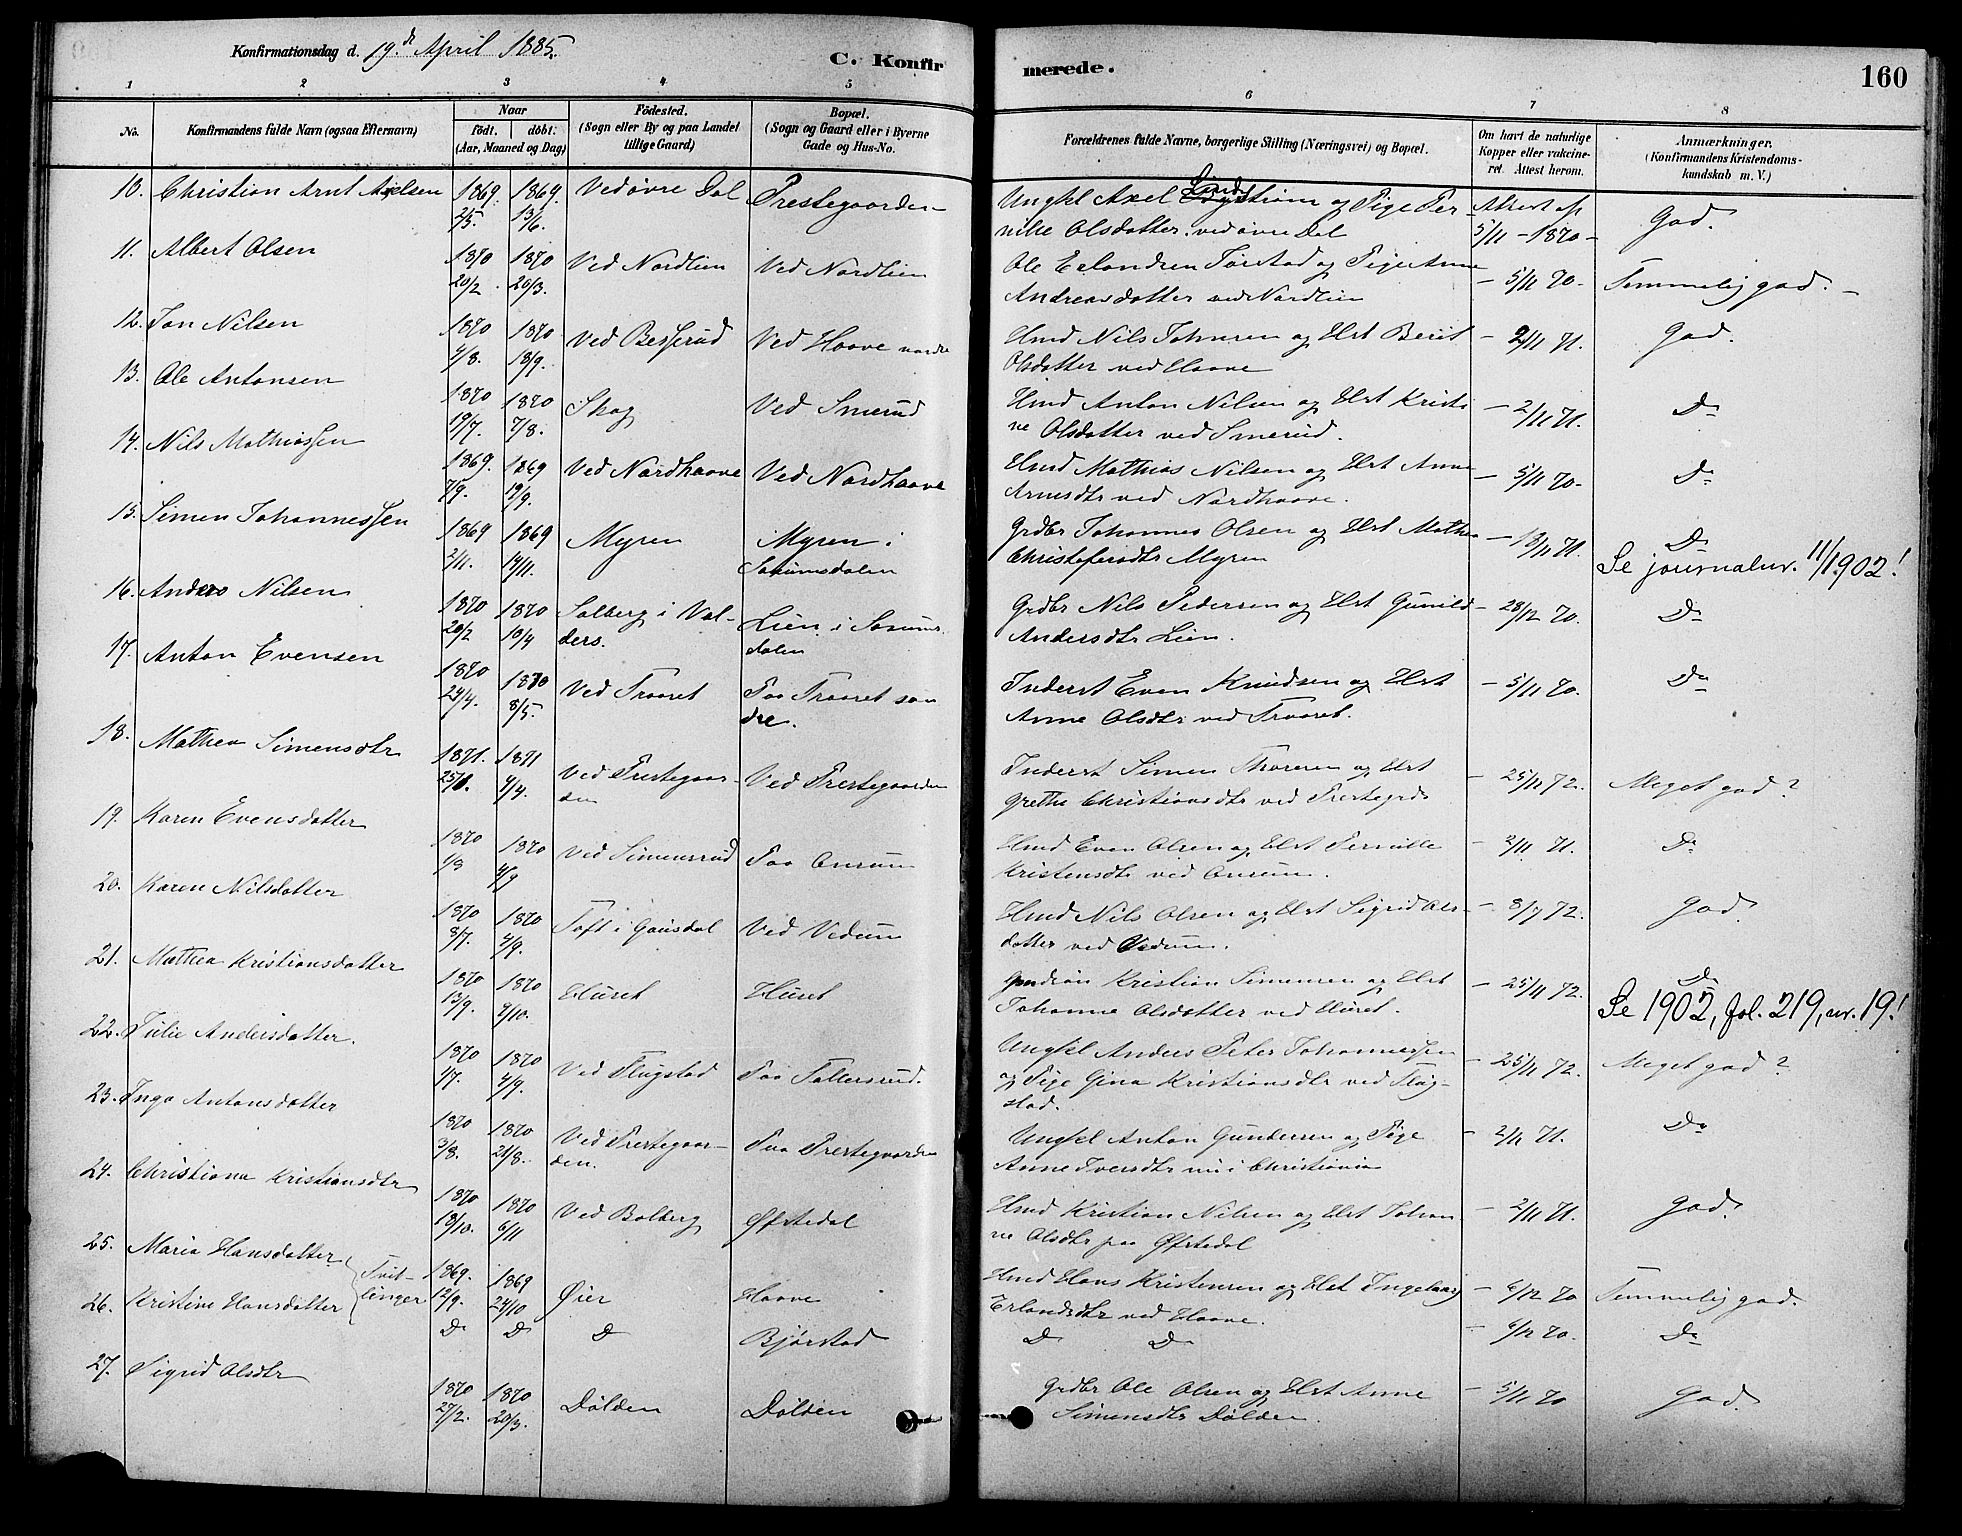 Konfirmationsdag d. 19.de April 1885.
C. Konfir
merede.
160
1 2 3 4 5 6 7 8
No.
Konfirmandens fulde Navn (ogsaa Efternavn)
Naar
födt. döbt.
(Aar, Maaned og Dag)
Födested.
(Sogn eller By og paa Landet
tillige Gaard)
Bopæl.
(Sogn og Gaard eller i Byerne
Gade og Hus-No.
Forældrenes fulde Navne, borgerlige Stilling (Næringsvei) og Bopæl.
Om havt de naturlige
Kopper eller vakcine-
ret. Attest herom.
Anmærkninger.
(Konfirmandens Kristendoms-
kundskab m. V.)
10. Christian Arnt Axelsen 1869. 2/5. 1869. 13/6. Ved øvre Dal Prestegaarden
Ungkl Axel Lindstrøm og Pige Per-
nille Olsdatter. ved øvre Dal
Attest af 5/11 - 1870 - God.
11. Albert Olsen 1870 20/2. 1870 20/3. Ved Nordlien Ved Nordlien
Ole Erlandsen Tørstad og Pige Anne
Andreasdatter ved Nordlien
- 5/11 70. Temmelig god. -
12. Jon Nilsen 1870 4/8. 1870 18/9. Ved Besserud Ved Haave nordre
Hmd Nils Johnsen og Hst Berit
Olsdatter ved Haave
- 2/11 71. God.
13. Ole Antonsen 1870 19/7. 1870 7/8. Skog Ved Smerud
Hmd Anton Nilsen og Hst Kristi
ne Olsdatter ved Smerud.
- 2/11 71. Do
14. Nils Mathiassen 1869. 7/9. 1869 19/9. Ved Nordhaave Ved Nordhaave
Hmd Mathias Nilsen og Hst Anne
Arnesdtr ved Nordhaave.
- 5/11 70. Do
15. Simen Johannessen 1869 2/11. 1869 14/11. Myren Myren i
Saeumsdalen
Grdbr Johannes Olsen og Hst Mathea
Christofersdtr Myren
- 13/11 71. Do
Se journalnr. 11/1902!
16. Anders Nilsen 1870 20/2 1870 10/4 Solberg i Val-
ders. Lien i Saeums-
dalen
Grdbr Nils Pedersen og Hst Gunild
Andersdtr Lien.
- 28/12 70. Do
17. Anton Evensen 1870 24/4. 1870 8/5. Ved Traaret Paa Traaret søn
dre.
Inderst Even Knudsen og Hst
Anne Olsdtr ved Traaret.
- 5/11 70. Do
18. Mathea Simensdtr 1871. 25/1. 1871 4/4. Ved Prestegaar-
den Ved Prestegaarden
Inderst Simen Thoresen og Hst
Grethe Christiansdtr ved Prestegrdn
- 25/11 72. Meget god?
19. Karen Evensdatter 1870 1/8 1870 4/9 Ved Simensrud Paa Onsum
Hmd Even Olsen og Hst Pernille
Kristensdtr ved Onsum.
- 2/11 71. Do
20. Karen Nilsdatter 1870 8/7. 1870 4/9. Toft i Gausdal Ved Vedum
Hmd Nils Olsen og Hst Sigrid Ols-
datter ved Vedum.
- 8/7 72. God.
21. Mathea Kristiansdatter 1870 13/9. 1870 2/10. Huset Huset
Kristian Simensen og Hst
Johanne Olsdatter ved Huset.
- 25/11 72. Do
Se 1902, fol. 219, nr. 19!
22. Julie Andersdatter. 1870 1/7. 1870 4/9. Ved Flugstad Paa Tollersrud.
Ungkl Anders Peter Johannessen
og Pige Gina Kristiansdtr ved Flug-
stad.
- 25/11 72. Meget god?
23. Inga Antonsdatter 1870 3/8. 1870 21/8. Ved Prestegaar-
den. Paa Prestegaarden
Ungkl Anton Gundersen og Pige
Anne Iversdtr nu i Christiania
- 2/11 71. Do
24. Christiana Kristiansdtr 1870 18/10. 1870 6/11 Ved Bolberg Øfstedal
Hmd Kristian Nilsen og Hst Johan
ne Olsdtr paa Øfstedal
- 2/11 71. God.
25. Maria Hansdatter Tvil-
linger 1869. 12/9. 1869 24/10 Øier Haave
Hmd Hans Kristensen og Hst Ingeborg
Erlandsdtr ved Haave.
- 6/12 70 Temmelig god.
26. Kristine Hansdatter Do Do Do Bjørstad
Do Do
- 6/12 70. Do
27. Sigrid Olsdtr 1870 27/2. 1870 20/3. Dølden Dølden
Grdbr Ole Olsen og Hst Anne
Simensdtr Dølden.
- 5/11 70 God.